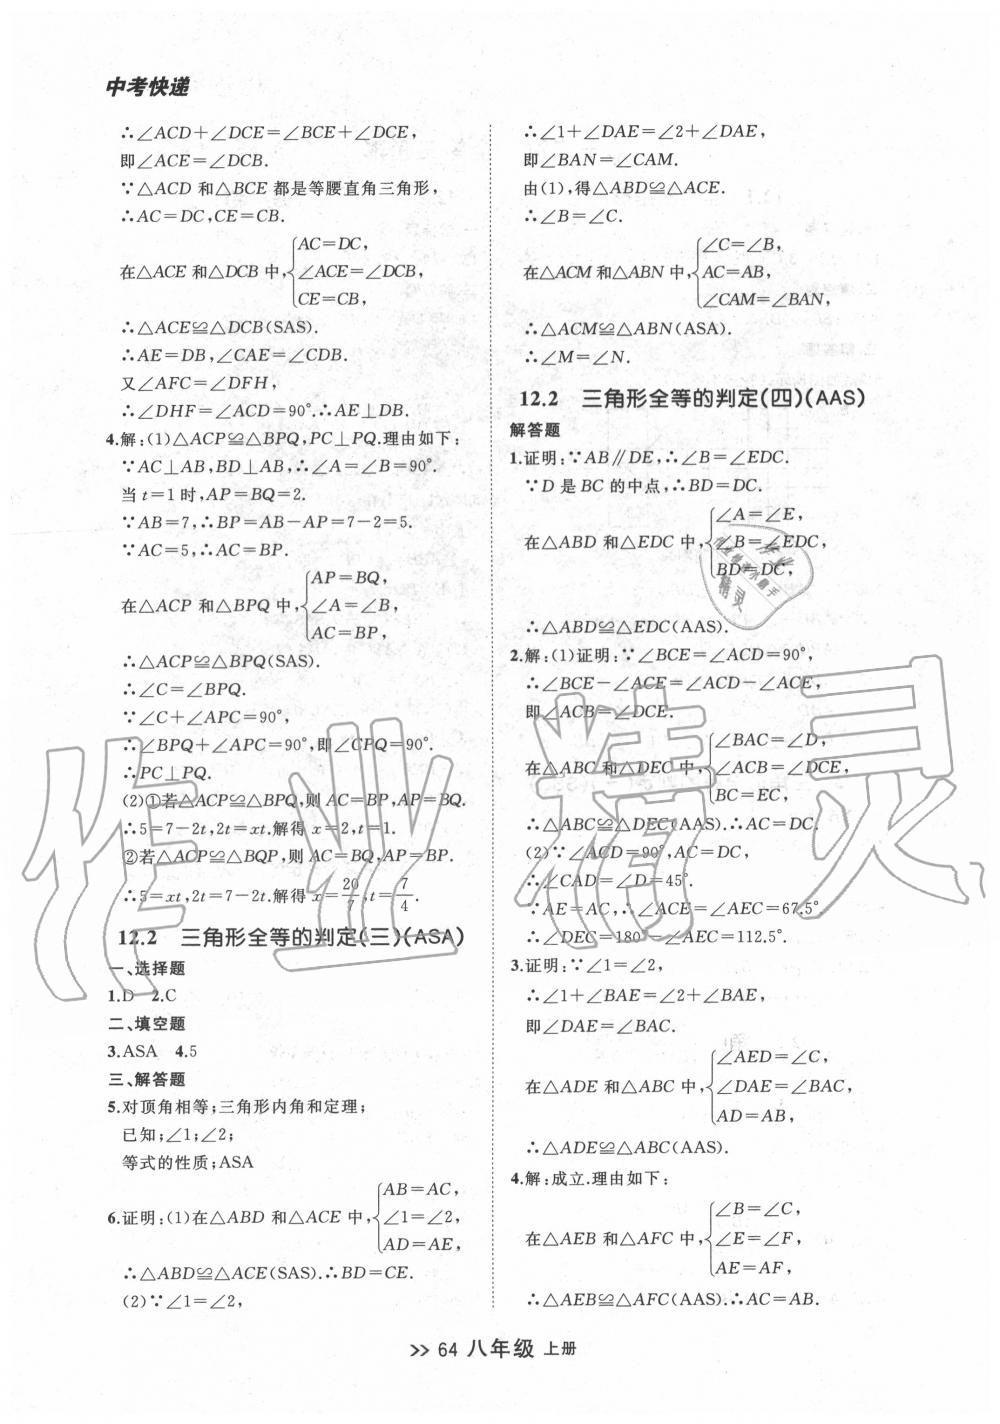 中考快递
∴∠ACD+∠DCE=∠BCE+∠DCE,
即∠ACE=∠DCB.
∵△ACD 和△BCE 都是等腰直角三角形,
∴AC=DC,CE=CB.
AC=DC,
在△ACE 和△DCB 中,{∠ACE=∠DCB,
CE=CB,
∴△ACE≌△DCB(SAS).
∴AE=DB,∠CAE=∠CDB.
又∠AFC=∠DFH,
∴∠DHF=∠ACD=90°.∴AE⊥DB.
4.解:(1)△ACP≌△BPQ,PC⊥PQ.理由如下:
∵AC⊥AB,BD⊥AB,∴∠A=∠B=90°.
当 t=1 时,AP=BQ=2.
∵AB=7,∴BP=AB-AP=7-2=5.
∵AC=5,∴AC=BP.
AP=BQ,
在△ACP 和△BPQ 中,{∠A=∠B,
AC=BP,
∴△ACP≌△BPQ(SAS).
∴∠C=∠BPQ.
∵∠C+∠APC=90°,
∴∠BPQ+∠APC=90°,即∠CPQ=90°.
∴PC⊥PQ.
(2)①若△ACP≌△BPQ,则 AC=BP,AP=BQ.
∴5=7-2t,2t=xt.解得 x=2,t=1.
②若△ACP≌△BQP,则 AC=BQ,AP=BP.
∴5=xt,2t=7-2t.解得 x=20/7,t=7/4.
12.2 三角形全等的判定(三)(ASA)
一、选择题
1.D 2.C
二、填空题
3.ASA 4.5
三、解答题
5.对顶角相等;三角形内角和定理;
已知;∠1;∠2;
等式的性质;ASA
AB=AC,
6.证明:(1)在△ABD 和△ACE 中,{∠1=∠2,
AD=AE,
∴△ABD≌△ACE(SAS).∴BD=CE.
(2)∵∠1=∠2,
∴∠1+∠DAE=∠2+∠DAE,
即∠BAN=∠CAM.
由(1),得△ABD≌△ACE.
∴∠B=∠C.
∠C=∠B,
在△ACM 和△ABN 中,{AC=AB,
∠CAM=∠BAN,
∴△ACM≌△ABN(ASA).
∴∠M=∠N.
12.2 三角形全等的判定(四)(AAS)
解答题
1.证明:∵AB∥DE,∴∠B=∠EDC.
∵D 是 BC 的中点,∴BD=DC.
∠A=∠E,
在△ABD 和△EDC 中,{∠B=∠EDC,
BD=DC,
∴△ABD≌△EDC(AAS).
2.解:(1)证明:∵∠BCE=∠ACD=90°,
∴∠BCE-∠ACE=∠ACD-∠ACE,
即∠ACB=∠DCE.
∠BAC=∠D,
在△ABC 和△DEC 中,{∠ACB=∠DCE,
BC=EC,
∴△ABC≌△DEC(AAS).∴AC=DC.
(2)∵∠ACD=90°,AC=DC,
∴∠CAD=∠D=45°.
∵AE=AC,∴∠ACE=∠AEC=67.5°.
∴∠DEC=180°-∠AEC=112.5°.
3.证明:∵∠1=∠2,
∴∠1+∠BAE=∠2+∠BAE,
即∠DAE=∠BAC.
∠AED=∠C,
在△ADE 和△ABC 中,{∠DAE=∠BAC,
AD=AB,
∴△ADE≌△ABC(AAS).
4.解:成立.理由如下:
∠B=∠C,
在△AEB 和△AFC 中,{∠E=∠F,
AE=AF,
∴△AEB≌△AFC(AAS).∴AC=AB.
>> 64 八年级 上册
作业精灵